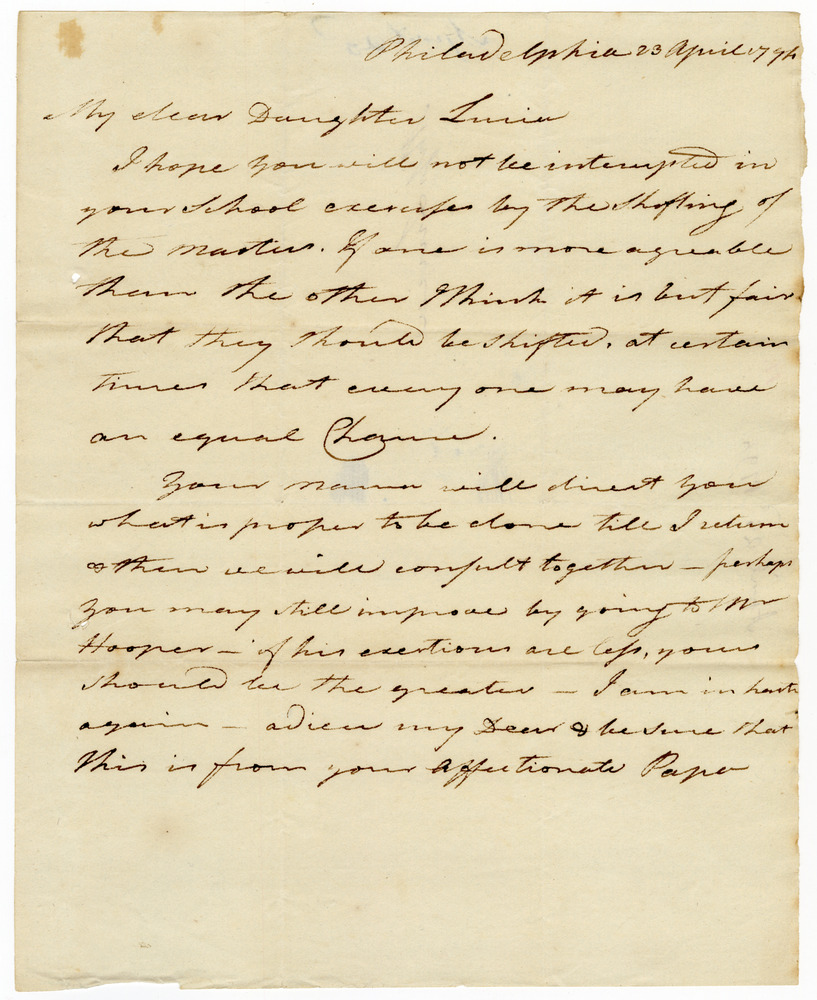 Philadelphia 23 April 1794
My dear Daughter Lucia
I hope you will not be interrupted in
your School exercises by the Shifting of
the Masters. If one is more agreable
than the other I think it is but fair
that they should be shifted, at certain
times that every one may have
an equal Chance.
Your mama will direct you
what is proper to be done till I return
& then we will consult together – perhaps
you may still improve by going to Mr
Hooper – if his exertions are less, yours
should be the greater – I am in haste
again – adieu my Dear & be sure that
this is from your affectionate Papa